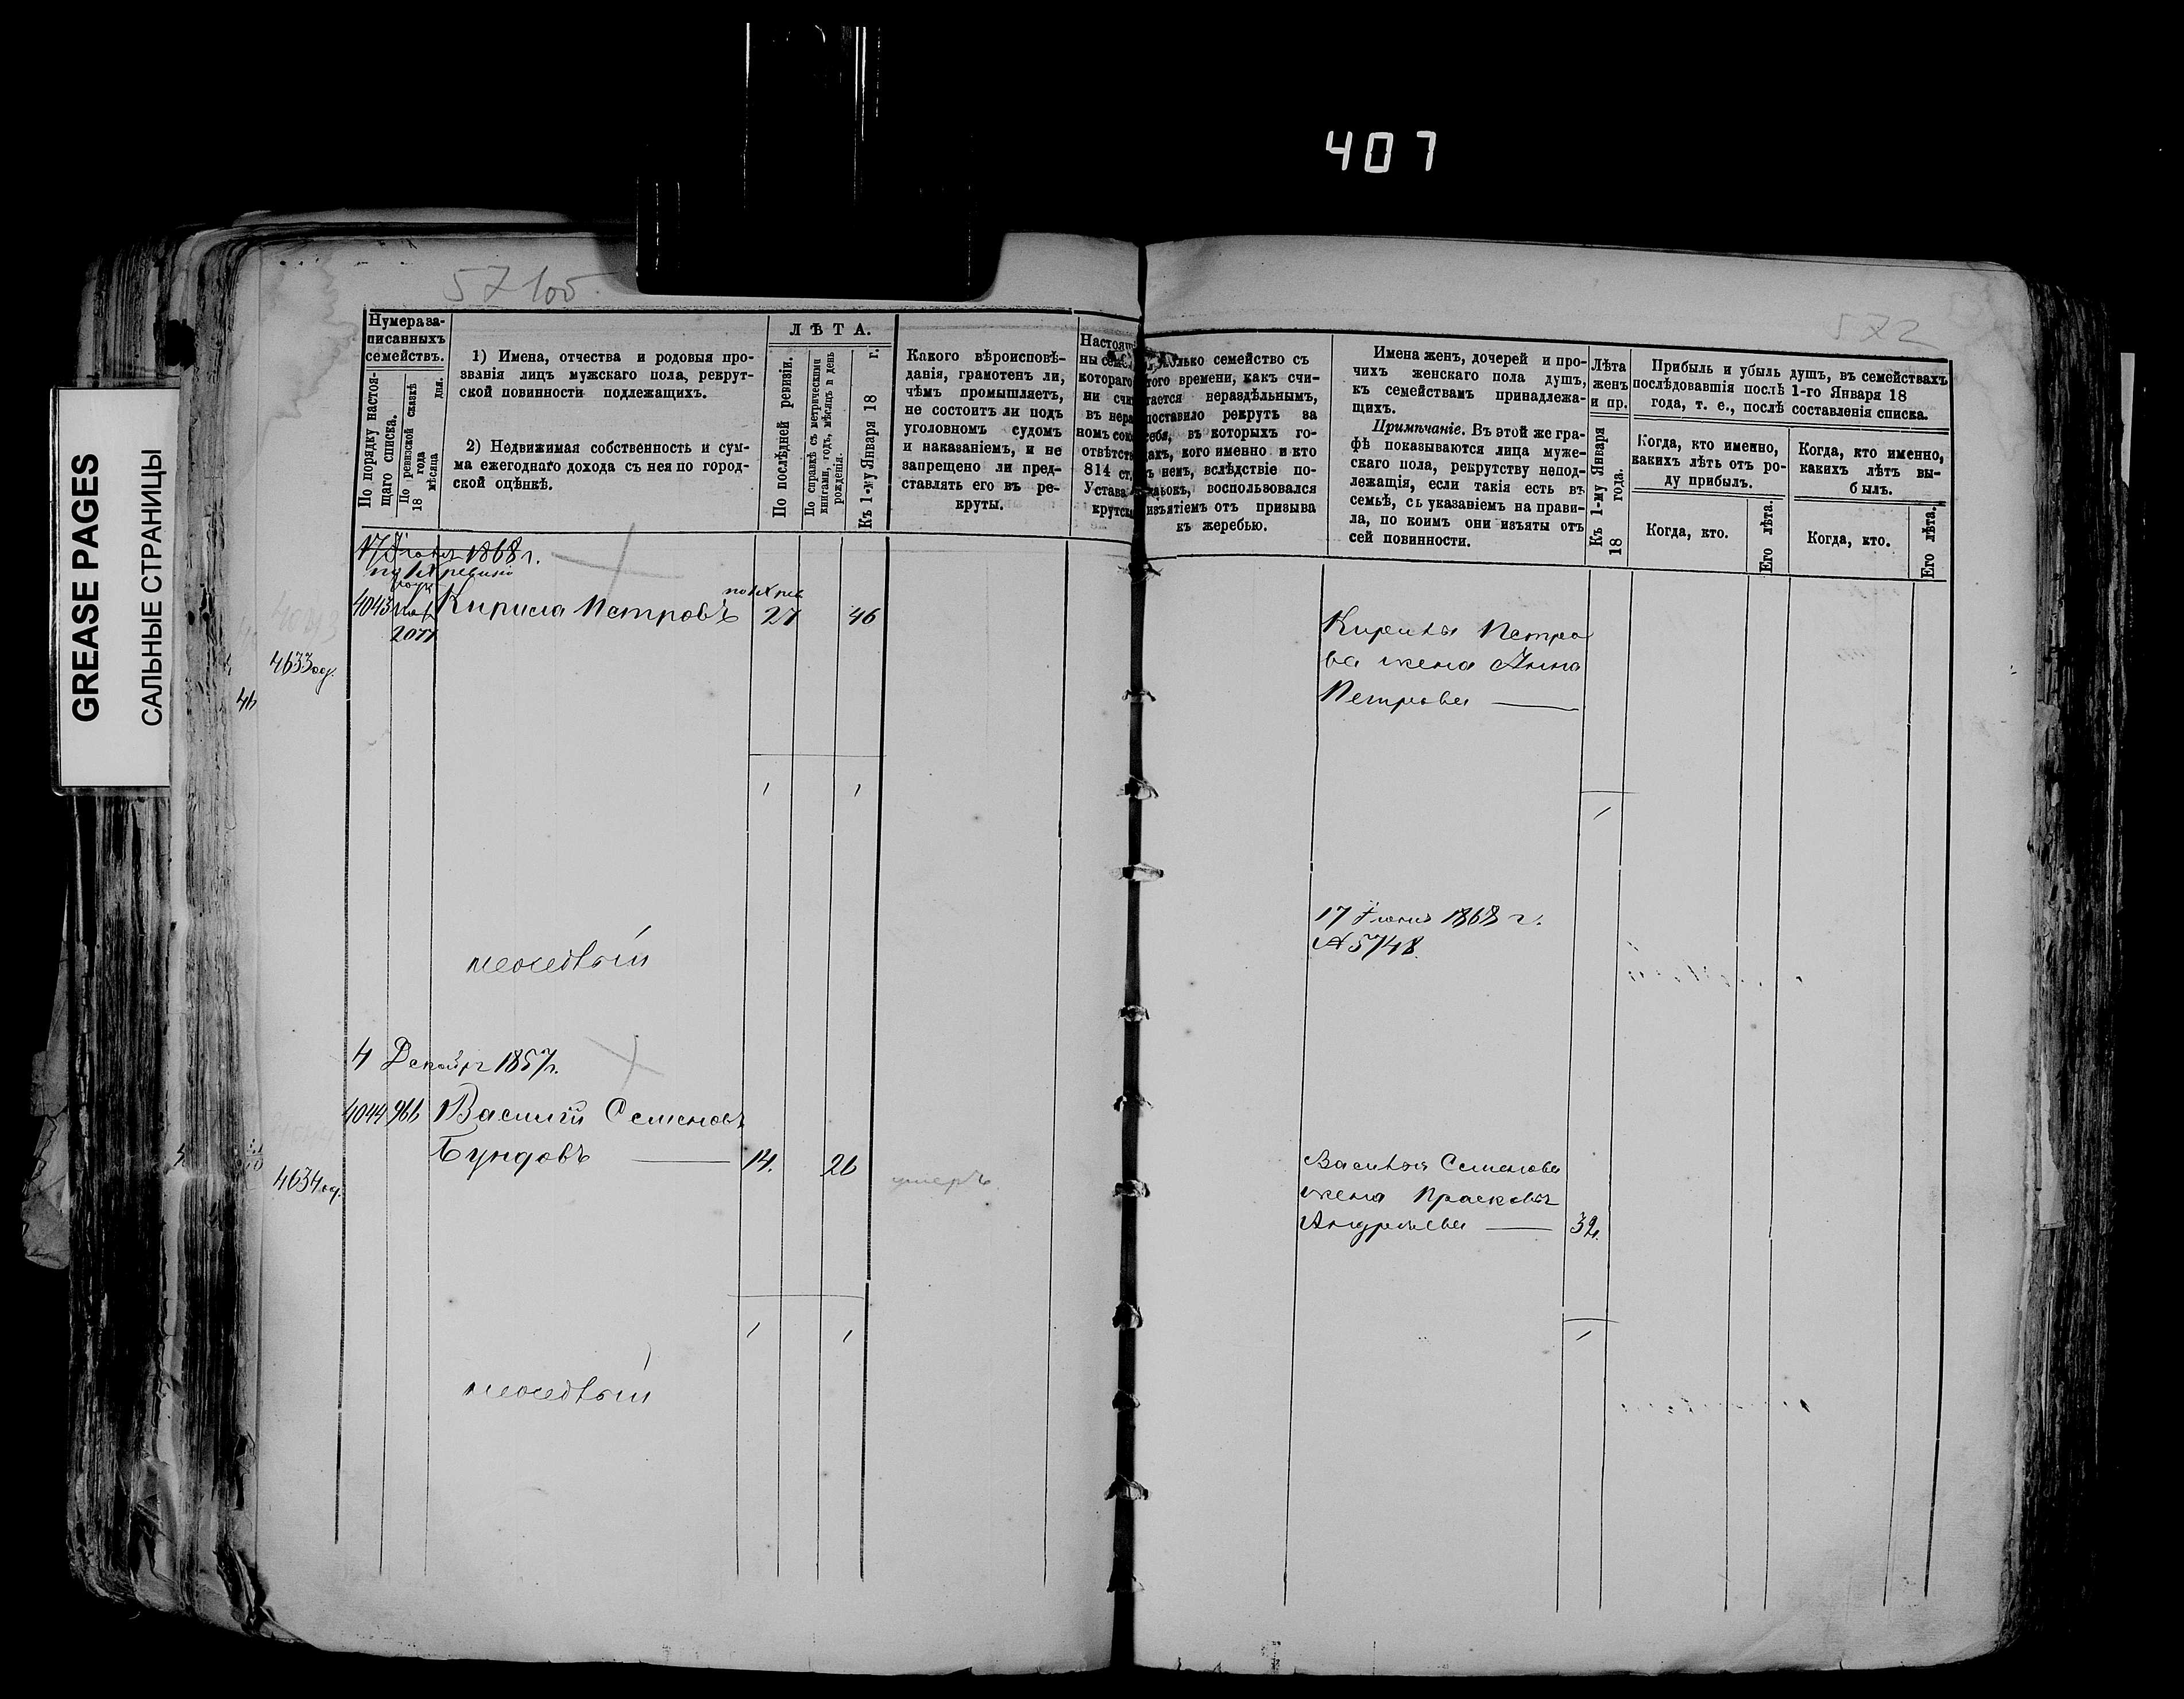 407
GREASE PAGES
САЛЬНЫЕ СТРАНИЦЫ
57 100
572
Нумера за-
писанныхъ
семействъ.
По порядку настоя-
щаго списка.
По ревизской сказкѣ
18 года
мѣсяца дня.
1) Имена, отчества и родовыя про-
званія лицъ мужскаго пола, рекрут-
ской повинности подлежащихъ.
2) Недвижимая собственность и сум-
ма ежегоднаго дохода съ нея по город-
ской оцѣнкѣ.
ЛѢТА.
По послѣдней ревизіи.
По справкѣ съ метрическими
книгами, годъ, мѣсяцъ и день
рожденія.
Къ 1-му Января 18 г.
Какого вѣроисповѣ-
данія, грамотенъ ли,
чѣмъ промышляетъ,
не состоитъ ли подъ
уголовномъ судомъ
и наказаніемъ, и не
запрещено ли пред-
ставлять его въ ре-
круты.
Настоящ
ны сем
котораго
ни счи
въ нера
номъ сою
отвѣтст
814 ст.
Устава
крутск
олько семейство съ
того времени, какъ счи-
тается нераздѣльнымъ,
поставило рекрутъ за
себя, въ которыхъ го-
дахъ, кого именно и кто
въ немъ, вслѣдствіе по-
воспользовался
изъятіемъ отъ призыва
къ жеребью.
Имена женъ, дочерей и про-
чихъ женскаго пола душъ,
къ семействамъ принадлежа-
щихъ.
Примѣчаніе. Въ этой же гра-
фѣ показываются лица муже-
скаго пола, рекрутству непод-
лежащія, если такія есть въ
семьѣ, съ указаніемъ на прави-
ла, по коимъ они изъяты отъ
сей повинности.
Лѣта
женъ
и пр.
Къ 1-му Января
18 года.
Прибыль и убыль душъ, въ семействахъ
послѣдовавшія послѣ 1-го Января 18
года, т. е., послѣ составленія списка.
Когда, кто именно,
какихъ лѣтъ отъ ро-
ду прибылъ.
Когда, кто.
Его лѣта.
Когда, кто именно,
какихъ лѣтъ вы-
былъ.
Когда, кто.
Его лѣта.
17 Іюня 1868 г.
по IX ревизіи
4043
2077
Кирила Петровъ
по IX рев
27 46
4633
Кирилы Петро
ва жена Анна
Петрова
1 1
1
17 Іюня 1868 г.
№ 5748.
4 Декабря 1857 г.
4044 966 Василій Семеновъ
Бундовъ 14. 26
умеръ
4634
Василья Семенова
жена Прасковья
Андреева 32.
1 1
1